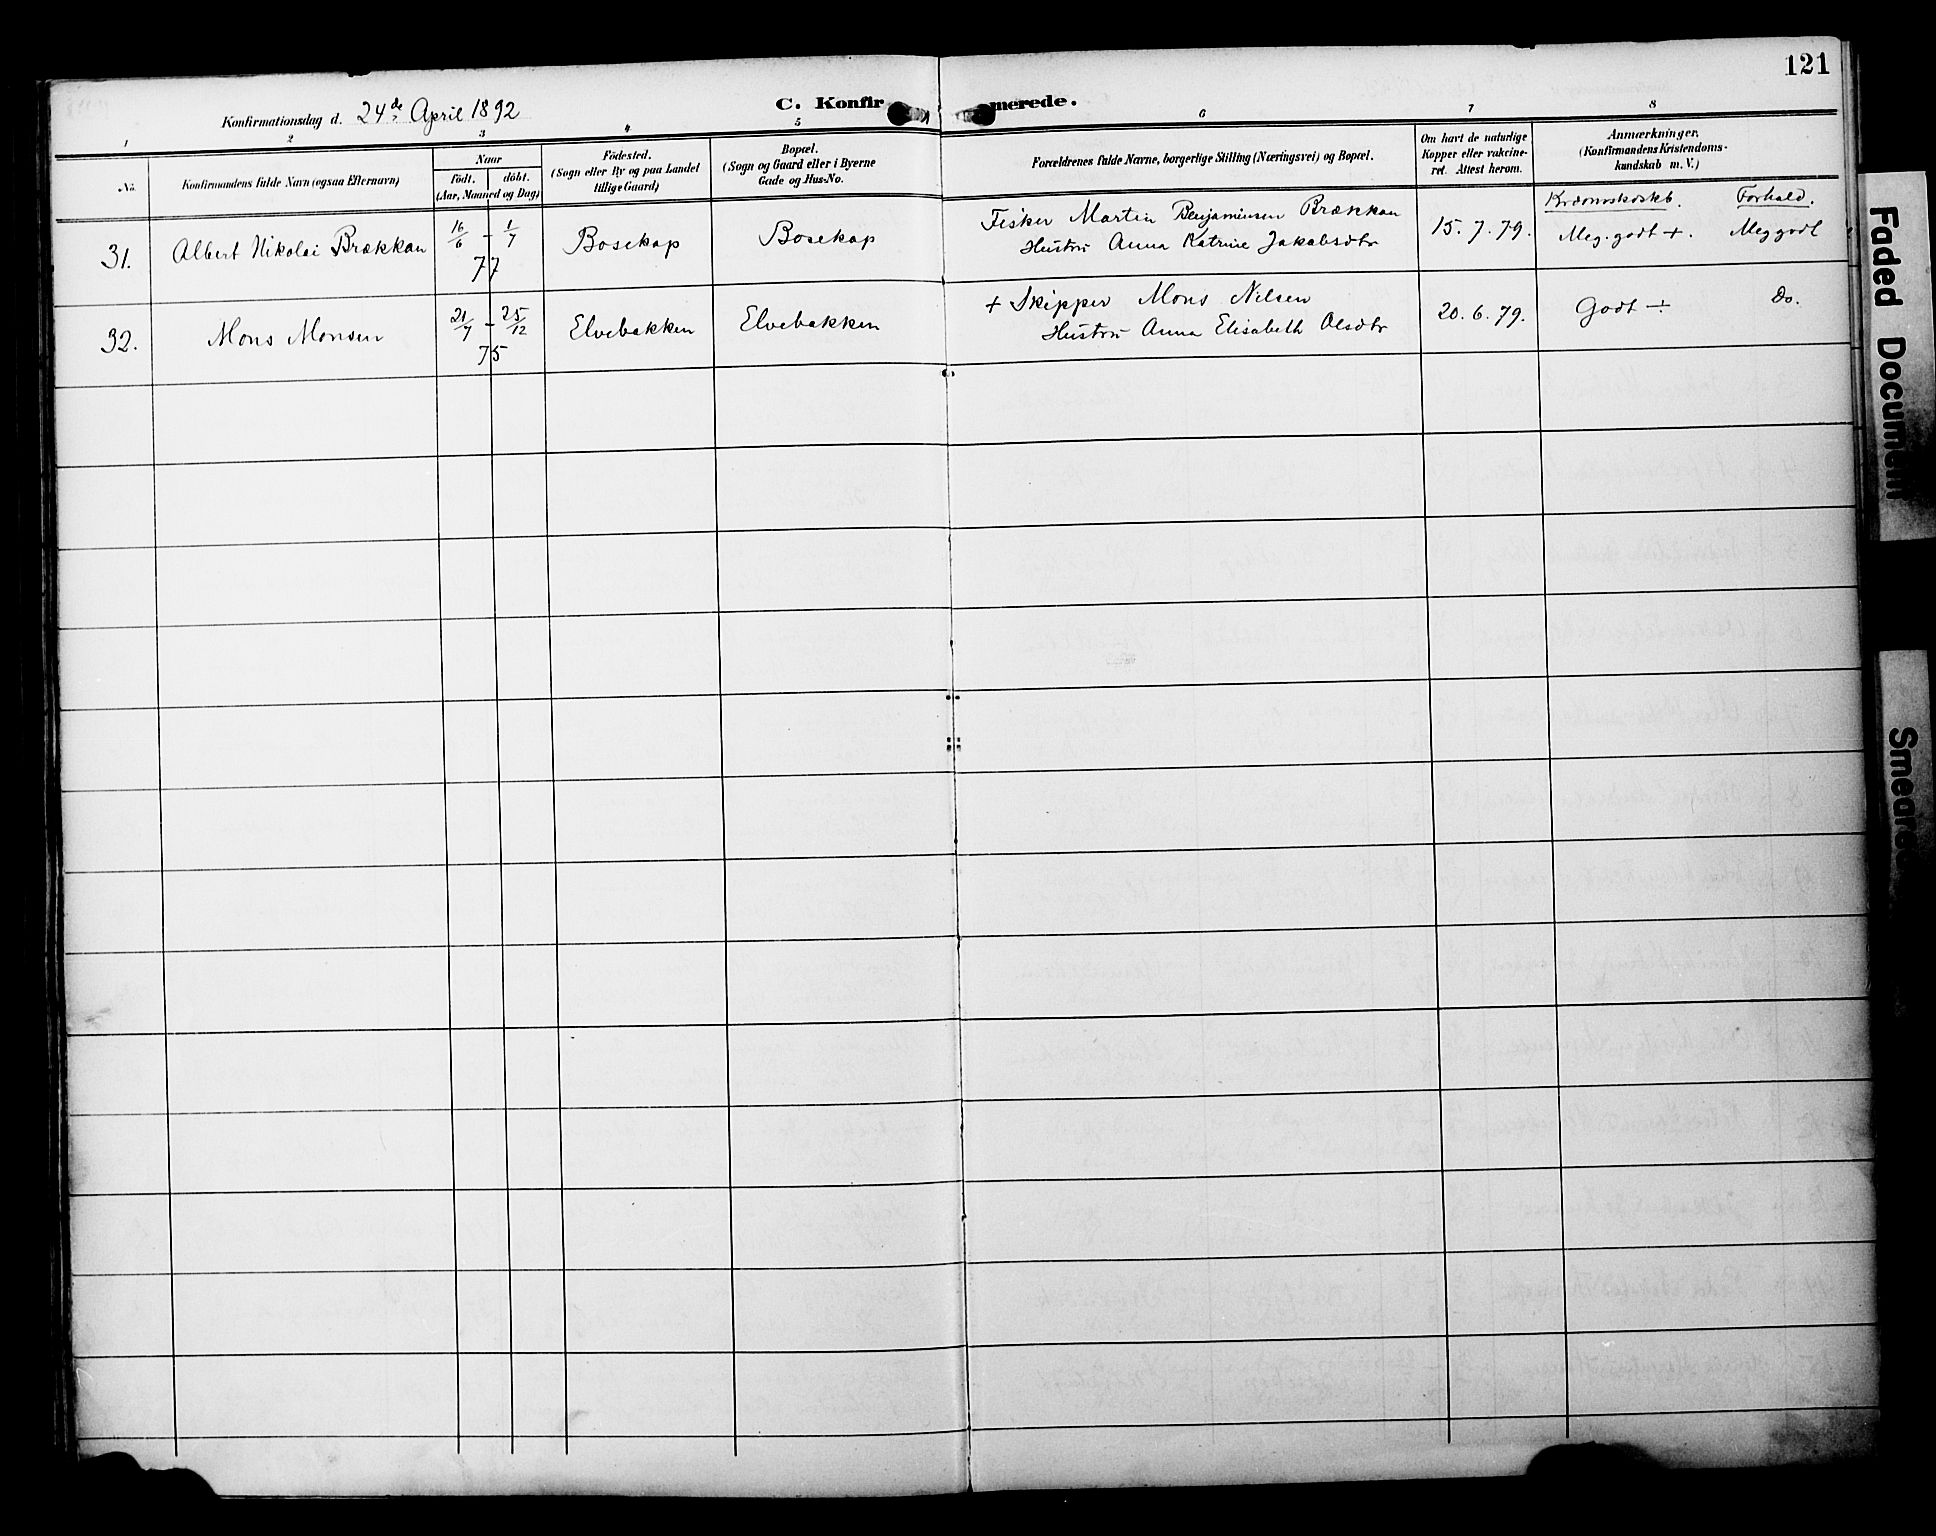 121
C. Konfirmerede.
Konfirmationsdag d. 24de April 1892
1 2 3 4 5 6 7 8
No.
Konfirmandens fulde Navn (ogsaa Efternavn)
Naar
födt. döbt.
(Aar, Maaned og Dag)
Födested.
(Sogn eller By og paa Landet
tillige Gaard)
Bopæl.
(Sogn og Gaard eller i Byerne
Gade og Hus-No.
Forældrenes fulde Navne, borgerlige Stilling (Næringsvei) og Bopæl.
Om havt de naturlige
Kopper eller vakcine-
ret. Attest herom.
Anmærkninger.
(Konfirmandens Kristendoms-
kundskab m. V.)
Forhold.
31. Albert Nikolai Brækkan 16/6 - 1/7 77 Bosekop Bosekop
Fisker Martin Benjaminsen Brækkan
Hustru Anna Katrine Jakobsdtr
15. 7. 79. Meg. godt +. Meg godt
32. Mons Monsen 21/7 - 25/12 75 Elvebakken Elvebakken
+ Skipper Mons Nilsen
Hustru Anna Elisabeth Olsdtr
20. 6. 79. Godt ÷ Do.
Faded Document
Smeared